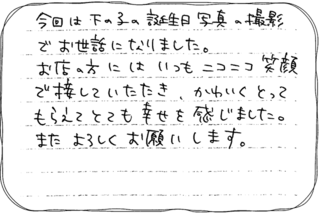 今回は下の子の誕生日写真の撮影
でお世話になりました。
お店の方にはいつもニコニコ笑顔
で接していただき、かわいくとって
もらえてとても幸せを感じました。
またよろしくお願いします。